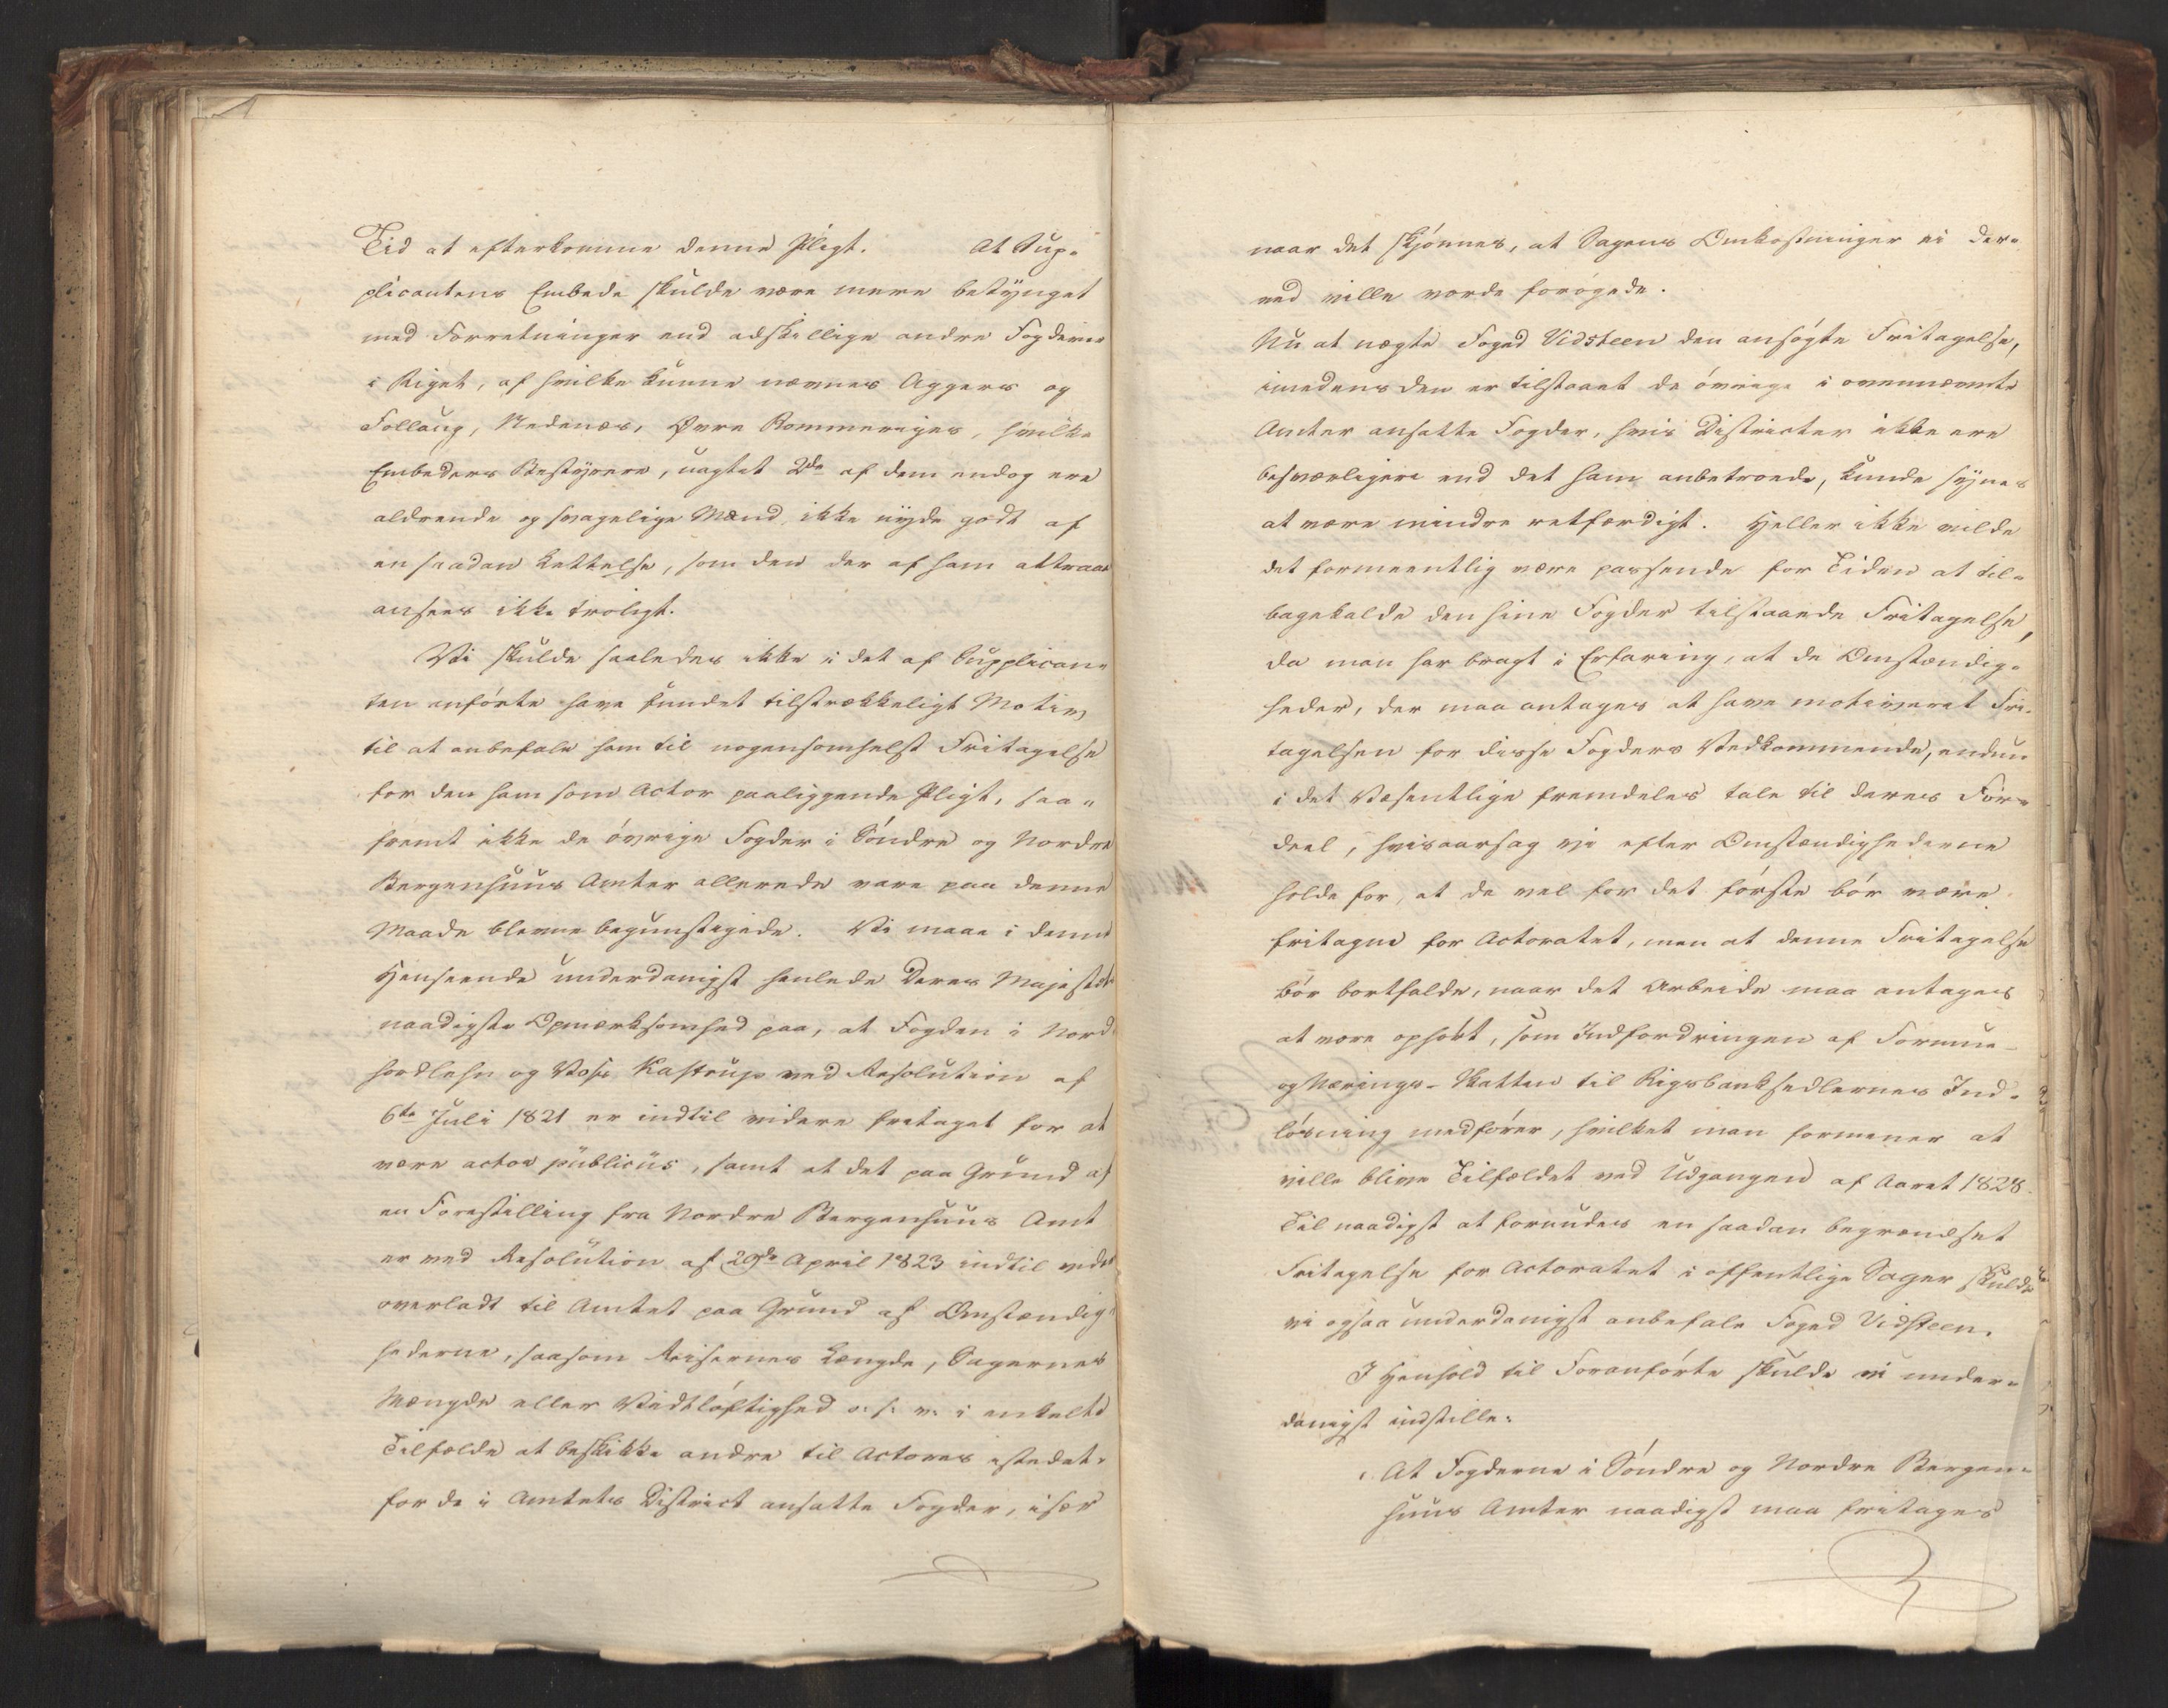 Tid at efterkomme denne Pligt. At Sup-
plicantens Embede skulde være mere betynget
med Forretninger end adskillige andre Fogderier
i Riget, af hvilke kunne nævnes Aggers og
Follaug, Nedenæs, Øvre Rommeriges, hvilke
Embeders Bestyrere, uagtet 2de af dem endog ere
aldrende og svagelige Mænd, ikke nyde godt af
en saadan Lettelse, som den der af ham attraaes
ansees ikke troligt.
Vi skulde saaledes ikke i det af Supplican-
ten anførte have fundet tilstrækkeligt Motiv
til at anbefale ham til nogensomhelst Fritagelse
for den ham som Actor paaliggende Pligt, saa-
fremt ikke de øvrige Fogder i Søndre og Nordre
Bergenhuus Amter allerede vare paa denne
Maade blevne begunstigede. Vi maae i denne
Henseende underdanigst henlede Deres Majestæts
naadigste Opmærksomhed paa, at Fogden i Nord-
hordlehn og Voss Kastrup ved Resolution af
6te Juli 1821 er indtil videre fritaget for at
være actor publicus, samt at det paa Grund af
en Forestilling fra Nordre Bergenhuus Amt
er ved Resolution af 29de April 1823 indtil videre
overladt til Amtet paa Grund af Omstændig-
hederne, saasom Reisernes Længde, Sagernes
Mængde eller Vidtløftighed o. s. v. i enkelte
Tilfælde at beskikke andre til Actores istedet-
for de i Amtets District ansatte Fogder, især
naar det skjønnes, at Sagens Omkostninger ei der-
ved ville vorde forøgede.
Nu at nægte Foged Vidsteen den ansøgte Fritagelse,
imedens den er tilstaaet de øvrige i ovennævnte
Amter ansatte Fogder, hvis Districter ikke ere
besværligere end det ham anbetroede, kunde synes
at være mindre retfærdigt. Heller ikke vilde
det formeentlig være passende for Tiden at til-
bagekalde den hine Fogder tilstaaede Fritagelse,
da man har bragt i Erfaring, at de Omstændig-
heder, der maa antages at have motiveret Fri-
tagelsen for disse Fogders Vedkommende, endnu
i det Væsentlige fremdeles tale til deres For-
deel, hvisaarsag vi efter Omstændighederne
holde for, at de vel for det første bør være
fritagne for Actoratet, men at denne Fritagelse
bør bortfalde, naar det Arbeide maa antages
at være ophørt, som Indfordringen af Formue-
og Nærings-Skatten til Rigsbanksedlernes Ind-
løsning medfører, hvilket man formener at
ville blive Tilfældet ved Udgangen af Aaret 1828.
Til naadigst at forundes en saadan begrændset
Fritagelse for Actoratet i offentlige Sager skulde
vi ogsaa underdanigst anbefale Foged Vidsteen.
I Henhold til Foranførte skulde vi under-
danigst indstille:
At Fogderne i Søndre og Nordre Bergen-
huus Amter naadigst maa fritages